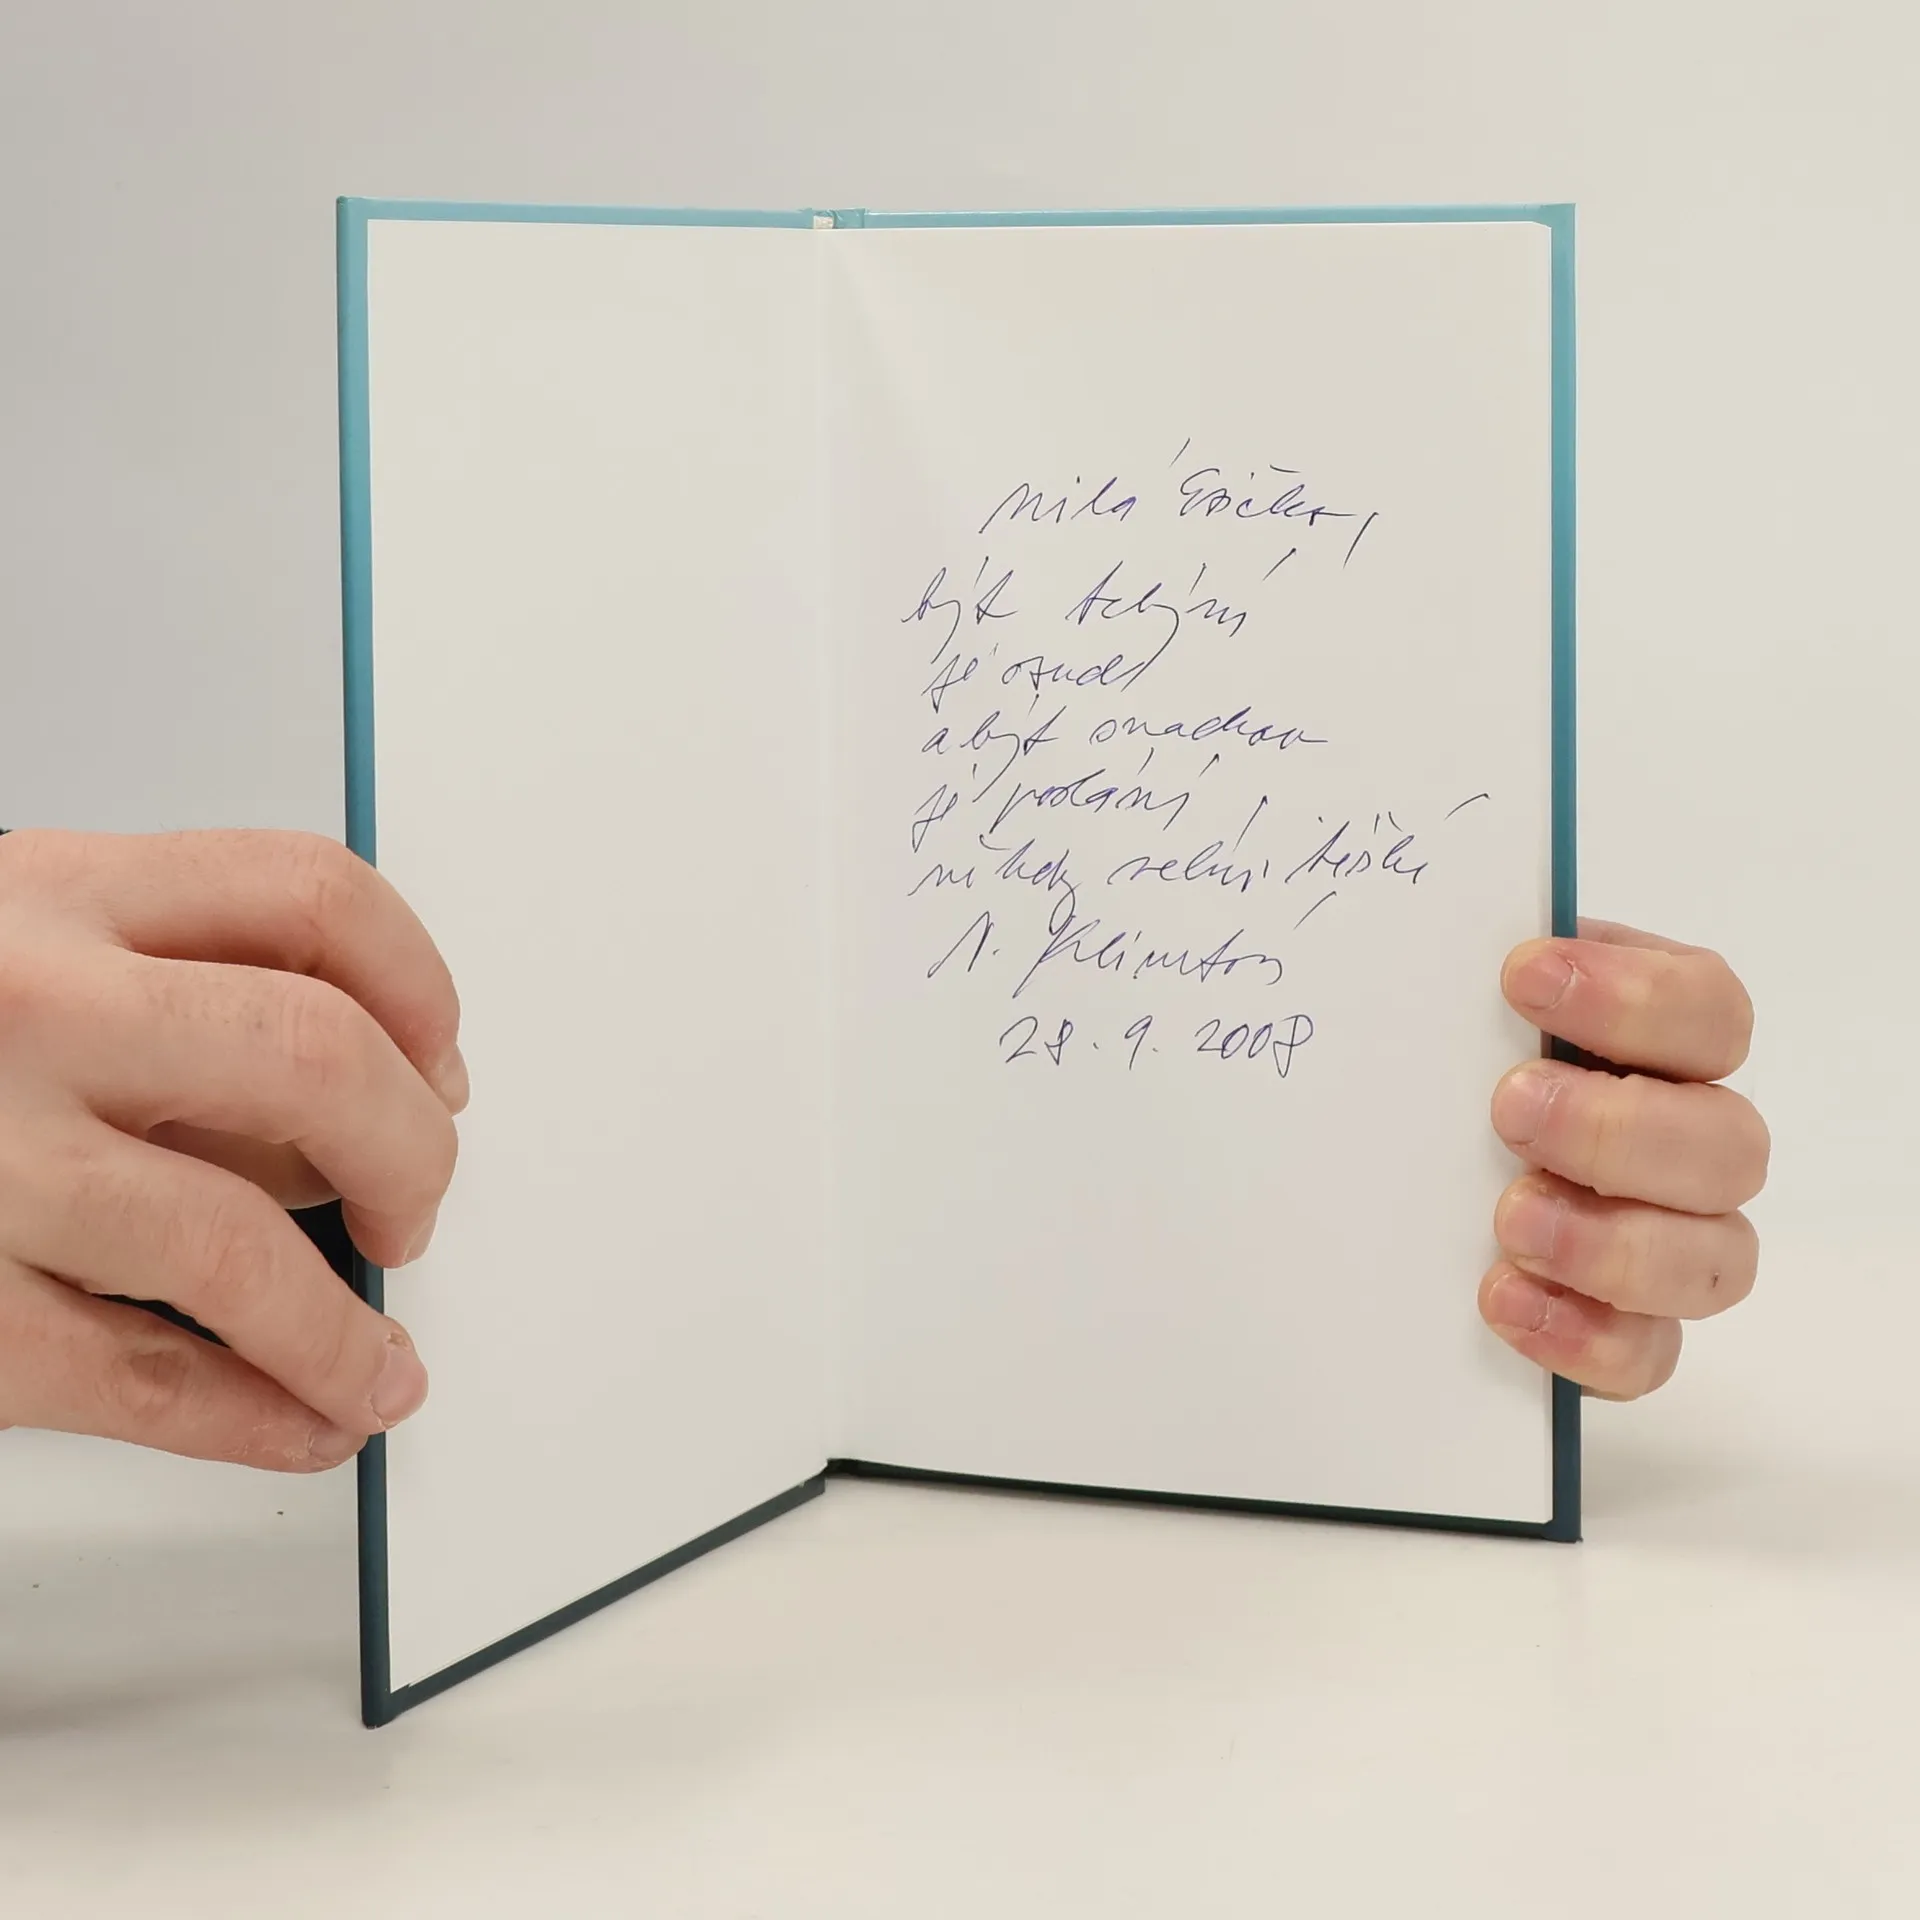 Milá Evičko,
být tchýní
je osud
a být snachou
je poslání,
někdy velmi těžké
N. Klimtová
28. 9. 2008